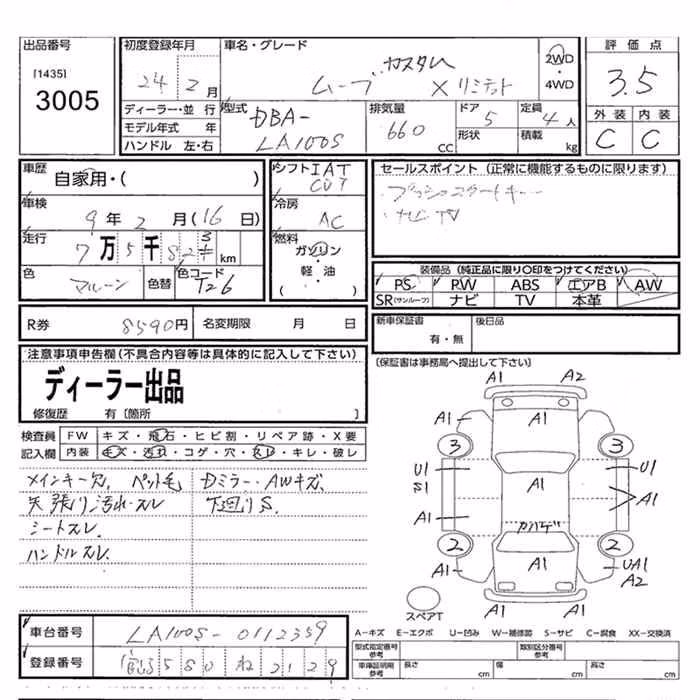 出品番号
[1435]
3005
初度登録年月
24 2月
ディーラー・並 行
モデル年式 年
ハンドル 左・右
車名・グレード
ムーブ カスタム X リミテット
2WD
・
4WD
型式
DBA-
LA100S
排気量
660 CC
ドア 5
形状
定員 4人
積載 kg
評価点
3.5
外装 内装
C C
車歴
自家用・( )
車検
9年 2月(16日)
走行
7万5千82 km
色
マルーン
色替
色コード
T26
シフト IAT
CVT
冷房
AC
燃料
ガソリン
・
軽・油
( )
セールスポイント (正常に機能するものに限ります)
プッシュスタートキー
ナビTV
装備品 (純正品に限り○印をつけてください)
PS PW ABS エアB AW
SR(サンルーフ) ナビ TV 本革
R券 8590円 名変期限 月 日
新車保証書
有・無
後日品
注意事項申告欄(不具合内容等は具体的に記入して下さい)
ディーラー出品
修復歴 有 [箇所 ]
[保証書は事務局へ提出して下さい]
検査員
記入欄
FW キズ・飛石・ヒビ割・リペア跡・X要
内装 キズ・汚れ・コゲ・穴・スレ・キレ・破レ
メインキー欠, ペット毛
天張り汚れ・スレ
シートスレ
ハンドルスレ
Dミラー・AWキズ
下廻りS
A1 A2
A1 A1 A1
3 3
U1 A1 U1
A1
A1
カハゲ
2 2
A1 A1 UA1
A2
A1
スペアT
車台番号 LA100S-0112359
登録番号 580 ね 2129
A-キズ E-エクボ U-凹み W-補修跡 S-サビ C-腐食 XX-交換済
型式指定番号
参考
類別区分番号
参考
車庫証明用
参考
長さ cm 幅 cm 高さ cm